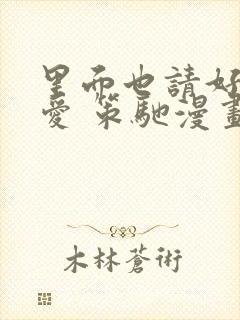 里而也請好
愛 策馳漫畫
木林蒼術